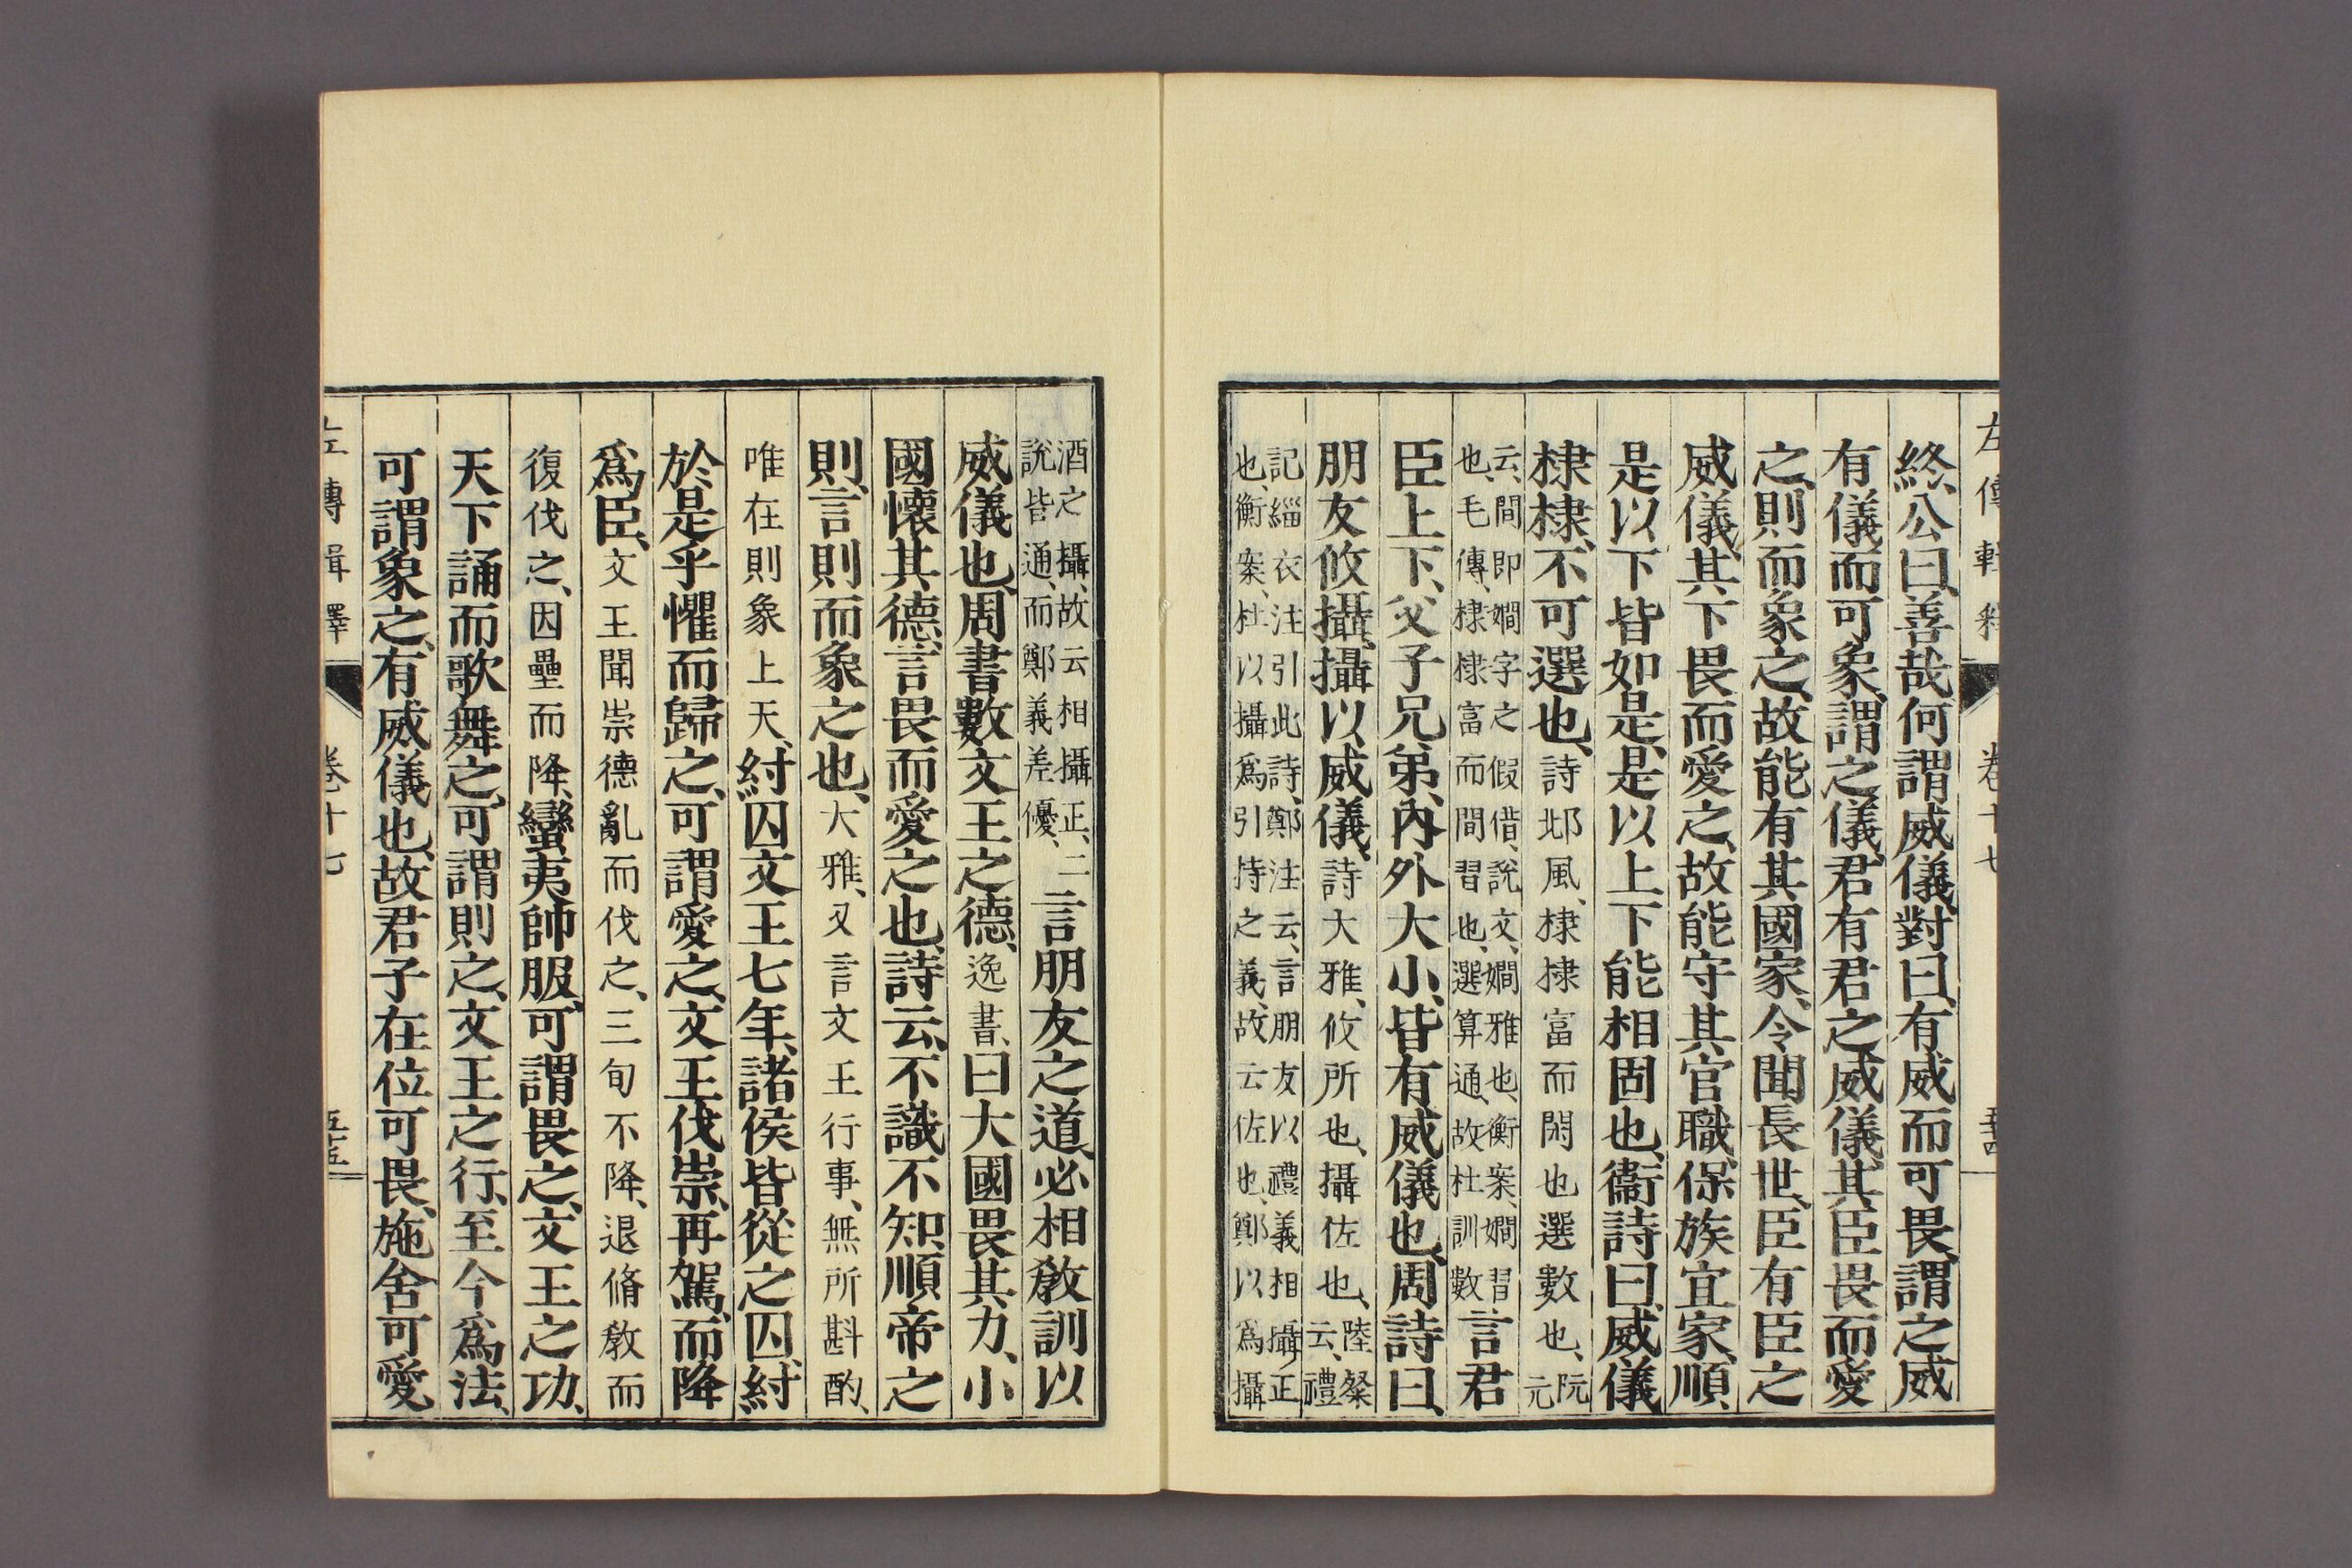 左傳輯釋 卷十七 五十四
終、公曰、善哉何謂威儀、對曰、有威而可畏、謂之威
有儀而可象、謂之儀、君有君之威儀、其臣畏而愛
之、則而象之、故能有其國家、令聞長世、臣有臣之
威儀、其下畏而愛之、故能守其官職、保族宜家、順
是以下皆如是、是以上下能相固也、衞詩曰、威儀
棣棣、不可選也、詩邶風、棣棣富而閑也選數也、阮元
云、間即嫺字之假借、說文、嫺雅也、衡案、嫺習
也、毛傳、棣棣富而間習也、選算通、故杜訓數言君
臣上下、父子兄弟、內外大小、皆有威儀也、周詩曰、
朋友攸攝、攝以威儀、詩大雅、攸所也、攝佐也、陸粲云、禮
記緇衣注引此詩、鄭注云、言朋友以禮義相攝正
也、衡案、杜以攝爲引持之義、故云佐也、鄭以爲攝
酒之攝、故云相攝正、二
說皆通、而鄭義差優、言朋友之道、必相敎訓以
威儀也、周書數文王之德、逸書、曰大國畏其力、小
國懷其德、言畏而愛之也、詩云、不識不知、順帝之
則、言則而象之也、大雅、又言文王行事、無所斟酌、
唯在則象上天、紂囚文王七年、諸侯皆從之囚、紂
於是乎懼而歸之、可謂愛之、文王伐崇、再駕、而降
爲臣、文王聞崇德亂而伐之、三旬不降、退脩敎而
復伐之、因壘而降、蠻夷帥服、可謂畏之、文王之功、
天下誦而歌舞之、可謂則之、文王之行、至今爲法、
可謂象之、有威儀也、故君子在位可畏、施舍可愛
左傳輯釋 卷十七 五十五